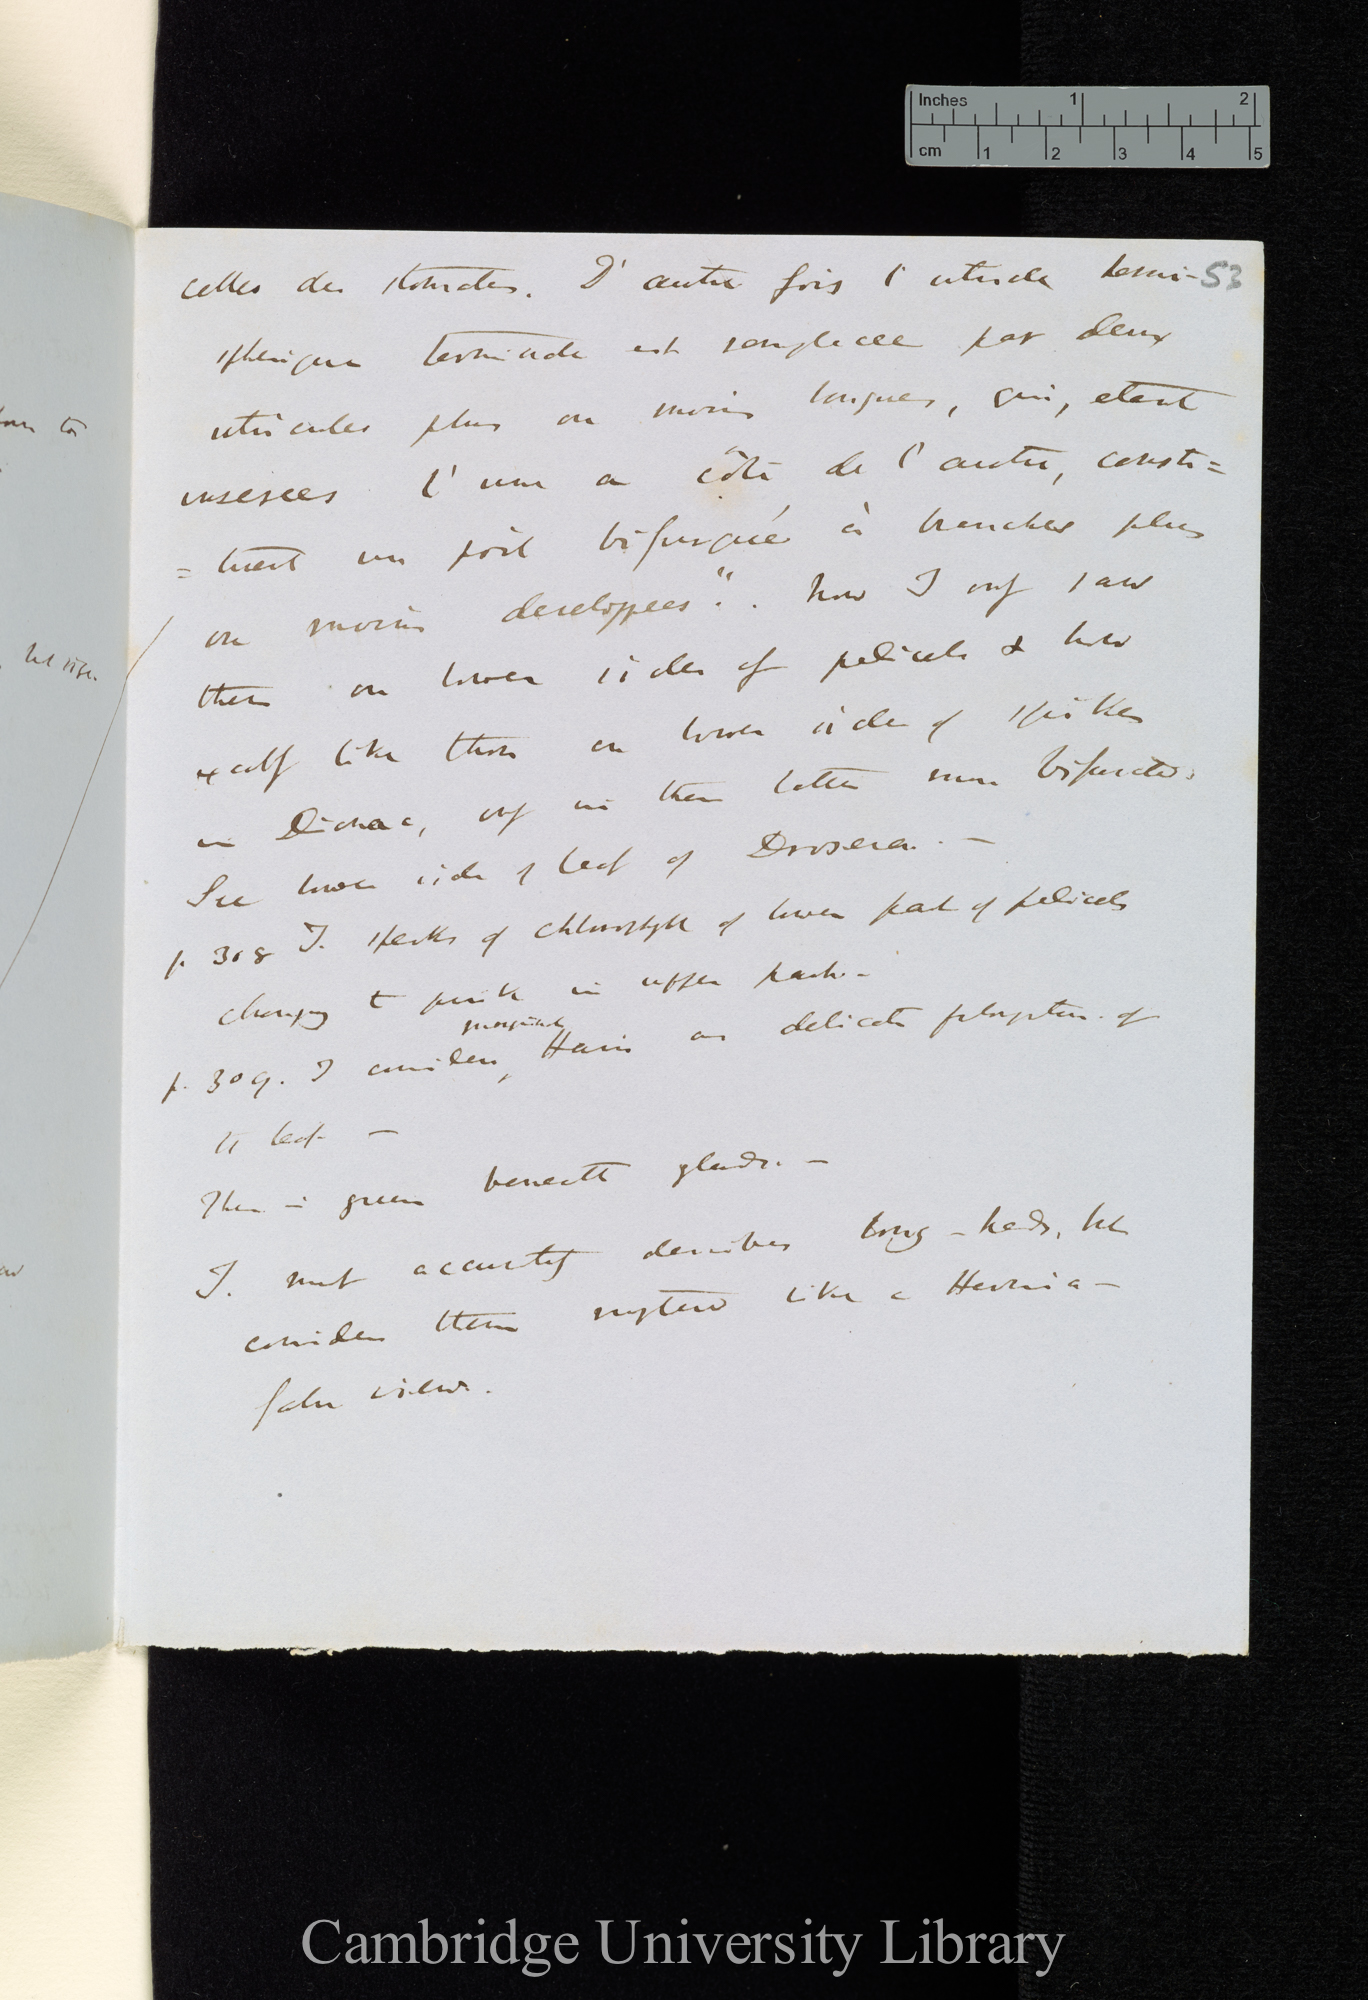 Inches 1 2
cm 1 2 3 4 5
53
celles des stomates. D'autre fois l'utricule hemi-
spherique terminale est remplacee par deux
utricules plus ou moins longues, qui, etant
inserees l'une a côté de l'autre, consti=
=tuent un poil bifurqué à branches plus
ou moins developpees". Now I only saw
them on lower sides of pedicels & how
exactly like those on lower side of spikes
in Dionaea, only in these latter more bifurcated.
See lower side of leaf of Drosera. —
p. 308 T. speaks of chlorophyll of lower part of pedicels
changing to pink in upper part. —
marginal
p. 309. T considers, Hairs as delicate prolongation of
the leaf —
There is green beneath glands. —
T. most accurately describes long-heads, but
considers them together like a Hernia —
false view.
ton to
but rise.
Cambridge University Library